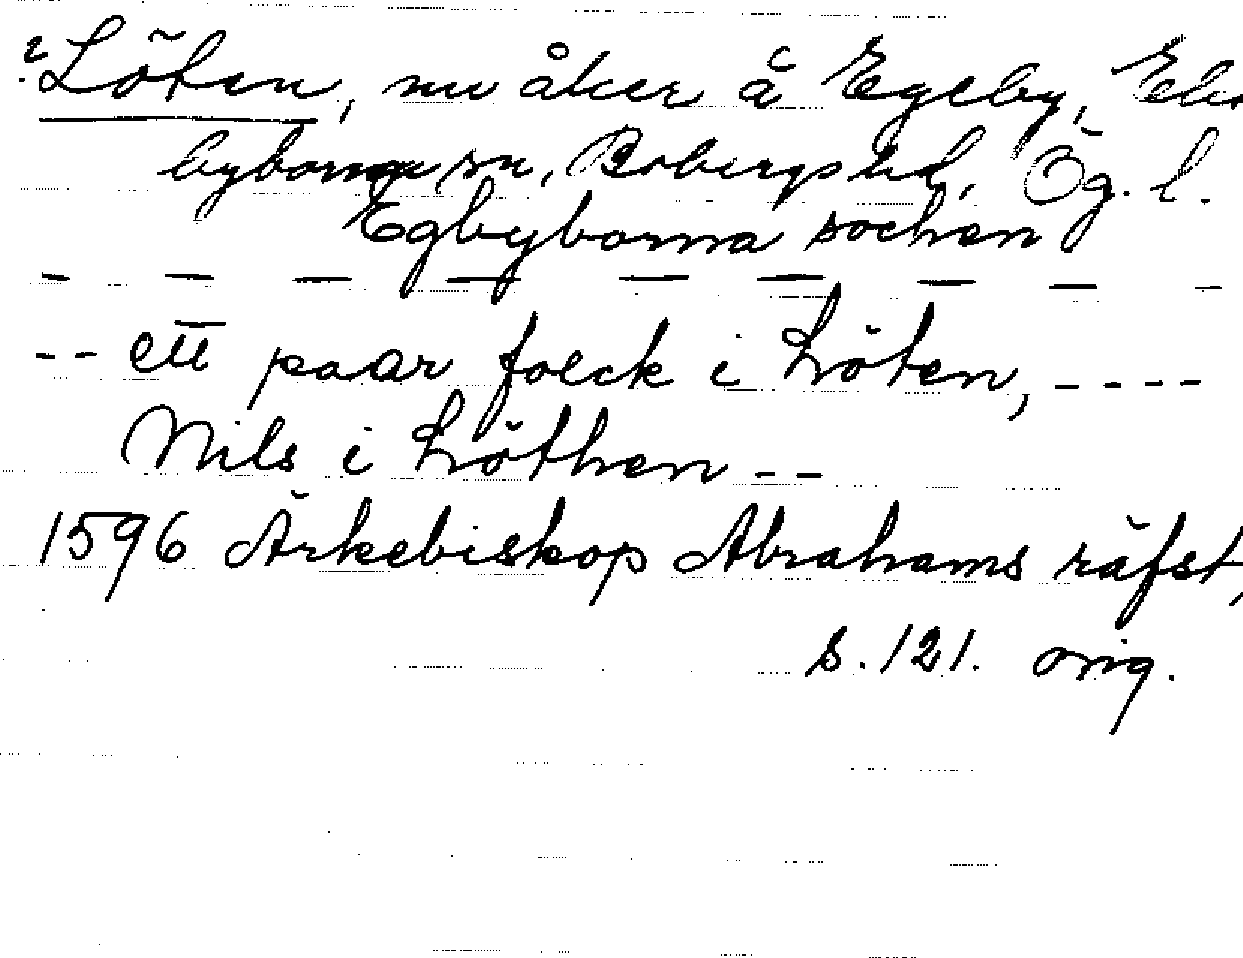 ? Löten, nu åker å Egeby, Eke
byborna sn, Bobergs hd, Ög. l.
Egbyborna sochen
— — — — — — — — —
-- ett paar folck i Löten, ----
Nils i Löthen --
1596 Ärkebiskop Abrahams räfst,
s. 121. orig.